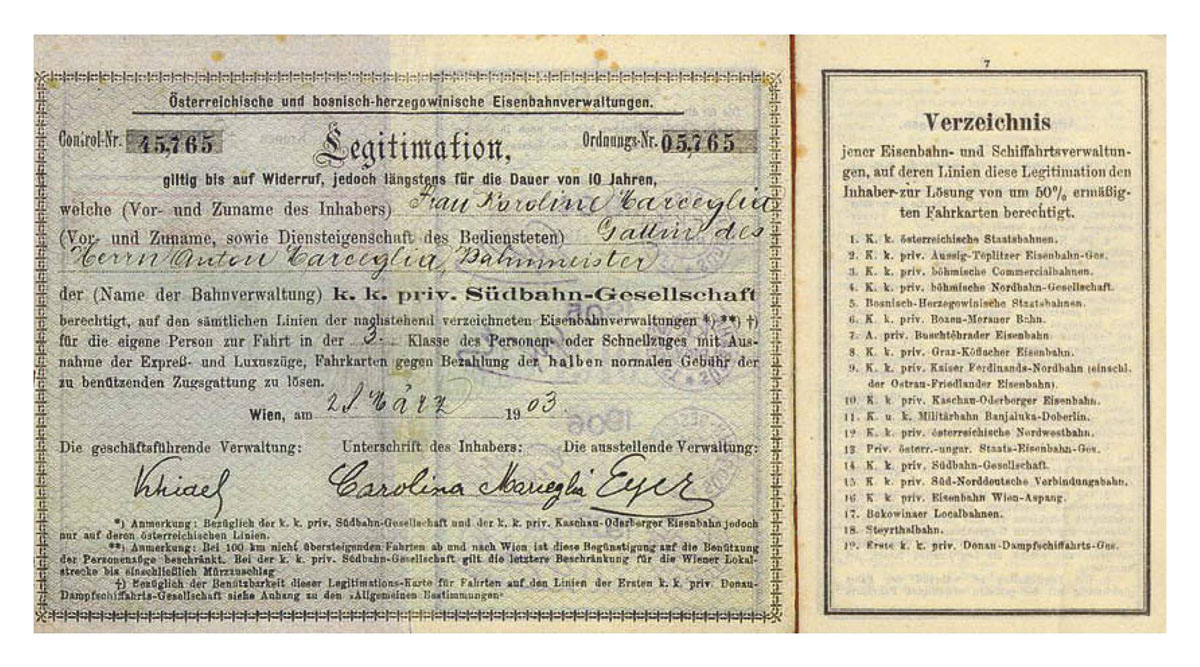 Österreichische und bosnisch-herzegowinische Eisenbahnverwaltungen.
Control-Nr. 45,765
Legitimation,
Ordnungs-Nr. 05,765
giltig bis auf Widerruf, jedoch längstens für die Dauer von 10 Jahren,
welche (Vor- und Zuname des Inhabers) Frau Karoline Marceglia
(Vor- und Zuname, sowie Diensteigenschaft des Bediensteten) Gattin des
Herrn Anton Marceglia, Bahnmeister
der (Name der Bahnverwaltung) k. k. priv. Südbahn-Gesellschaft
berechtigt, auf den sämtlichen Linien der nachstehend verzeichneten Eisenbahnverwaltungen *) **) †)
für die eigene Person zur Fahrt in der 3. Klasse des Personen- oder Schnellzuges mit Aus-
nahme der Expreß- und Luxuszüge, Fahrkarten gegen Bezahlung der halben normalen Gebühr der
zu benützenden Zugsgattung zu lösen.
Wien, am März 1903.
Die geschäftsführende Verwaltung: Unterschrift des Inhabers: Die ausstellende Verwaltung:
Carolina Marceglia
*) Anmerkung: Bezüglich der k. k. priv. Südbahn-Gesellschaft und der k. k. priv. Kaschau-Oderberger Eisenbahn jedoch
nur auf deren österreichischen Linien.
**) Anmerkung: Bei 100 km nicht übersteigenden Fahrten ab und nach Wien ist diese Begünstigung auf die Benützung
der Personenzüge beschränkt. Bei der k. k. priv. Südbahn-Gesellschaft gilt die letztere Beschränkung für die Wiener Lokal-
strecke bis einschließlich Mürzzuschlag
†) Bezüglich der Benützbarkeit dieser Legitimations-Karte für Fahrten auf den Linien der Ersten k. k. priv. Donau-
Dampfschiffahrts-Gesellschaft siehe Anhang zu den »Allgemeinen Bestimmungen«
1906
7
Verzeichnis
jener Eisenbahn- und Schiffahrtsverwaltun-
gen, auf deren Linien diese Legitimation den
Inhaber zur Lösung von um 50% ermäßig-
ten Fahrkarten berechtigt.
1. K. k. österreichische Staatsbahnen.
2. K. k. priv. Aussig-Teplitzer Eisenbahn-Ges.
3. K. k. priv. böhmische Commercialbahnen.
4. K. k. priv. böhmische Nordbahn-Gesellschaft.
5. Bosnisch-Herzegowinische Staatsbahnen.
6. K. k. priv. Bozen-Meraner Bahn.
7. A. priv. Buschtěhrader Eisenbahn
8. K. k. priv. Graz-Köflacher Eisenbahn.
9. K. k. priv. Kaiser Ferdinands-Nordbahn (einschl.
der Ostrau-Friedlander Eisenbahn).
10. K. k priv. Kaschau-Oderberger Eisenbahn.
11. K. u. k. Militärbahn Banjaluka-Doberlin.
12 K. k. priv. österreichische Nordwestbahn.
13 Priv. österr.-ungar. Staats-Eisenbahn-Ges.
14 K. k. priv. Südbahn-Gesellschaft.
15 K. k. priv. Süd-Norddeutsche Verbindungsbahn.
16 K. k. priv. Eisenbahn Wien-Aspang.
17. Bukowinaer Localbahnen.
18. Steyrthalbahn.
19. Erste k. k. priv. Donau-Dampfschiffahrts-Ges.